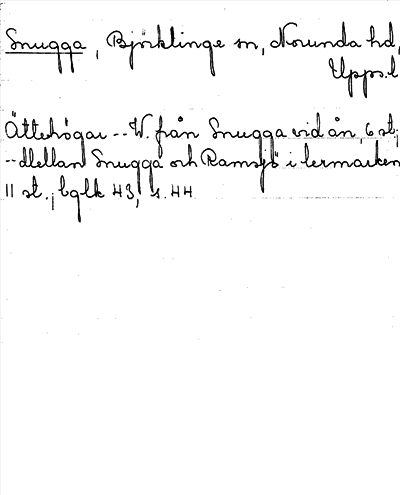 Snugga, Björklinge sn, Norunda hd,
Upps. l
Ättehögar -- W. från Snugga vid ån, 6 st;
-- Mellan Snugga och Ramsjö i lermarken
11 st.; bglk 43, s. 44